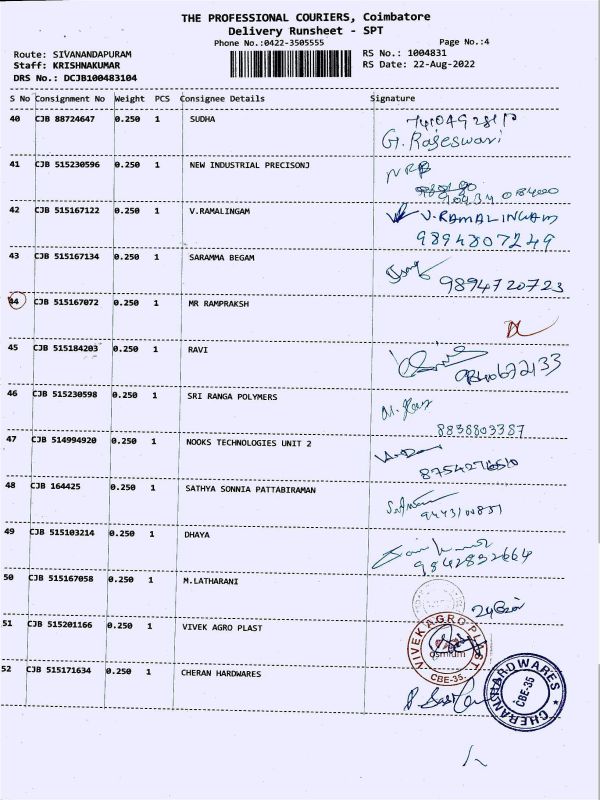 THE PROFESSIONAL COURIERS, Coimbatore
Delivery Runsheet - SPT
Phone No.:0422-3505555 Page No.:4
Route: SIVANANDAPURAM RS No.: 1004831
Staff: KRISHNAKUMAR RS Date: 22-Aug-2022
DRS No.: DCJB100483104
S No Consignment No Weight PCS Consignee Details Signature
40 CJB 88724647 0.250 1 SUDHA
G. Rajeswari
41 CJB 515230596 0.250 1 NEW INDUSTRIAL PRECISONJ
42 CJB 515167122 0.250 1 V.RAMALINGAM V.RAMALINGAM
9894807249
43 CJB 515167134 0.250 1 SARAMMA BEGAM
9894720723
44 CJB 515167072 0.250 1 MR RAMPRAKSH
45 CJB 515184203 0.250 1 RAVI
46 CJB 515230598 0.250 1 SRI RANGA POLYMERS
8838803387
47 CJB 514994920 0.250 1 NOOKS TECHNOLOGIES UNIT 2
48 CJB 164425 0.250 1 SATHYA SONNIA PATTABIRAMAN
49 CJB 515103214 0.250 1 DHAYA
9842832664
50 CJB 515167058 0.250 1 M.LATHARANI
51 CJB 515201166 0.250 1 VIVEK AGRO PLAST VIVEK AGRO PLAST
CBE-35.
52 CJB 515171634 0.250 1 CHERAN HARDWARES CHERAN HARDWARES
CBE-35